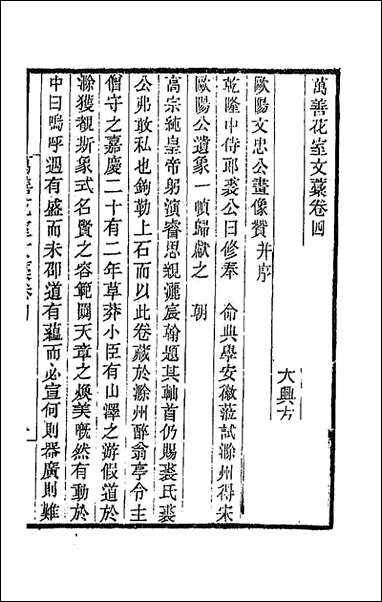 萬善花室文藁卷四
大興方
歐陽文忠公畫像贊并序
乾隆中侍郎裘公曰修奉　俞典學安徽蒞試滁州得宋
歐陽公遺象一幀歸獻之　朝
高宗純皇帝躬演睿思親灑宸翰題其軸首仍賜裘氏裘
公弗敢私也鉤勒上石而以此卷藏於滁州醉翁亭令主
僧守之嘉慶二十有二年草莽小臣有山澤之游假道於
滁獲覩斯象式名賢之容範闚天章之煥美嘅然有動於
中曰嗚呼遇有盛而未卲道有蘊而必宣何則器廣則難